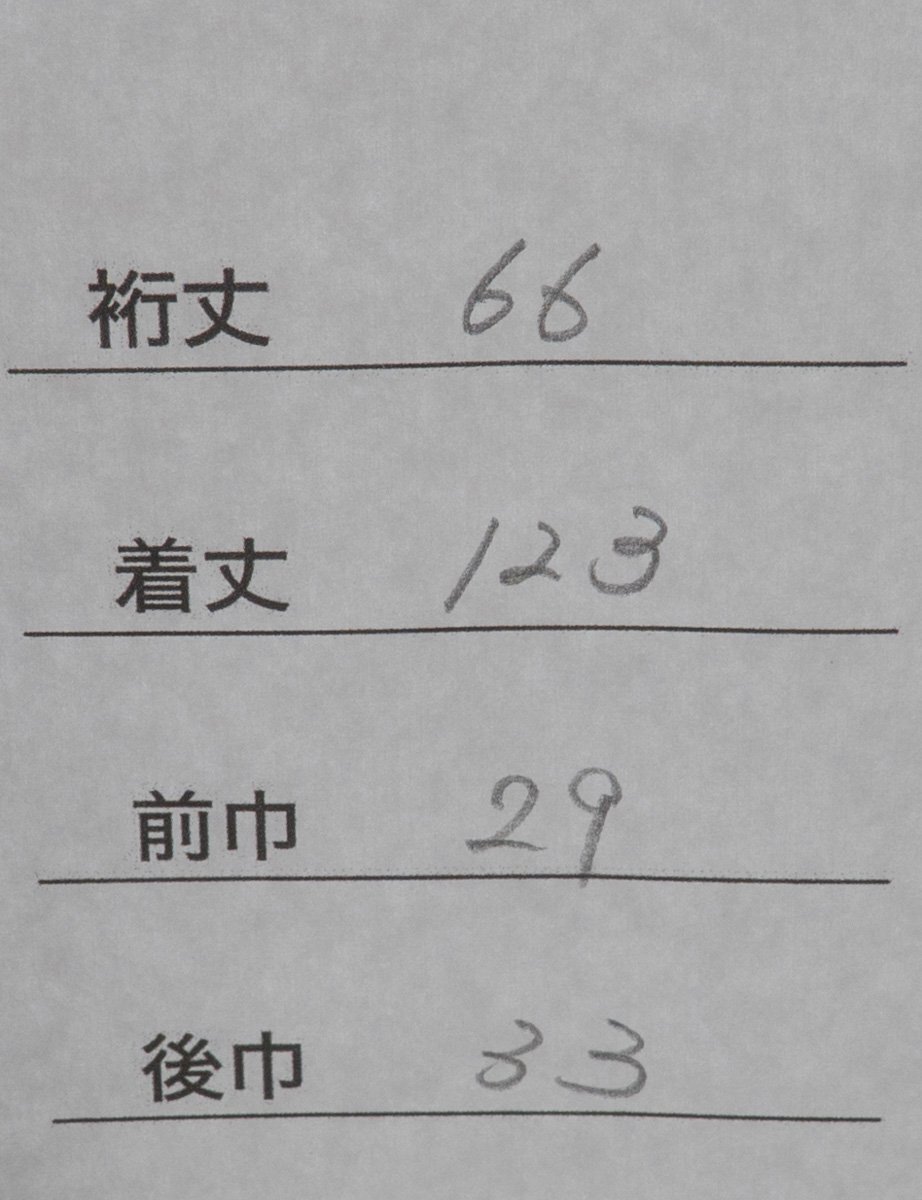 裄丈 66
着丈 123
前巾 29
後巾 33